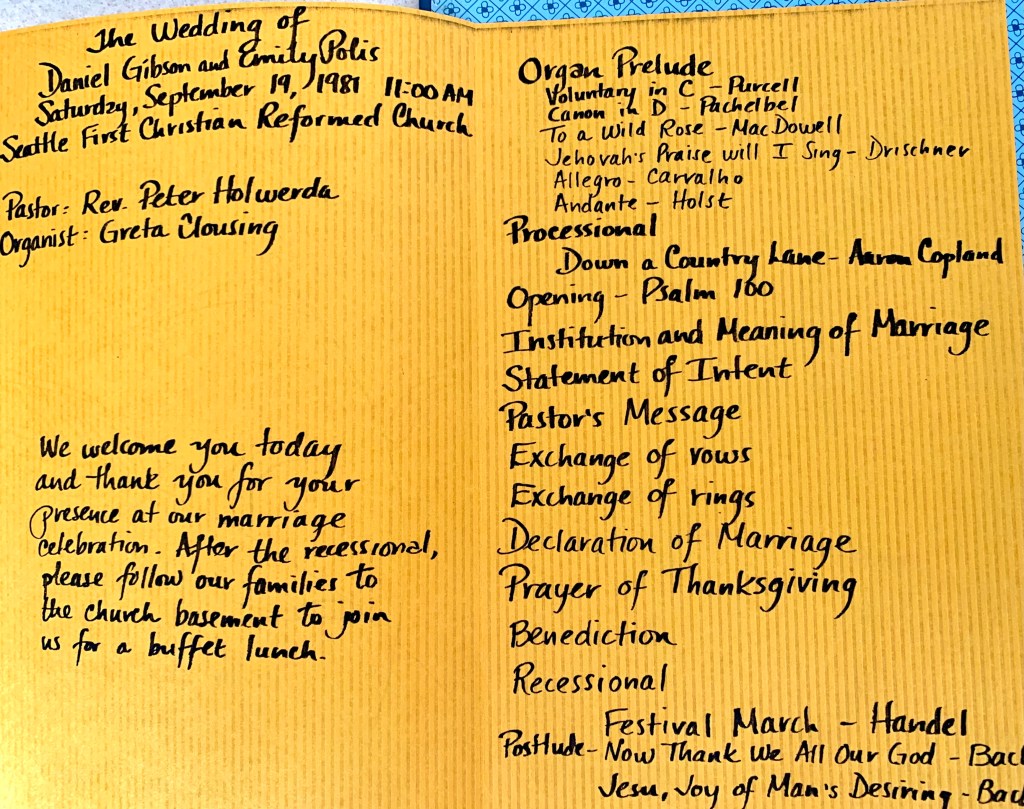 The Wedding of
Daniel Gibson and Emily Polis
Saturday, September 19, 1981 11:00 AM
Seattle First Christian Reformed Church
Pastor: Rev. Peter Holwerda
Organist: Greta Clousing
We welcome you today
and thank you for your
presence at our marriage
celebration. After the recessional,
please follow our families to
the church basement to join
us for a buffet lunch.
Organ Prelude
Voluntary in C - Purcell
Canon in D - Pachelbel
To a Wild Rose - MacDowell
Jehovah's Praise will I Sing - Drischner
Allegro - Carvalho
Andante - Holst
Processional
Down a Country Lane - Aaron Copland
Opening - Psalm 100
Institution and Meaning of Marriage
Statement of Intent
Pastor's Message
Exchange of vows
Exchange of rings
Declaration of Marriage
Prayer of Thanksgiving
Benediction
Recessional
Festival March - Handel
Postlude - Now Thank We All Our God - Bach
Jesu, Joy of Man's Desiring - Bac